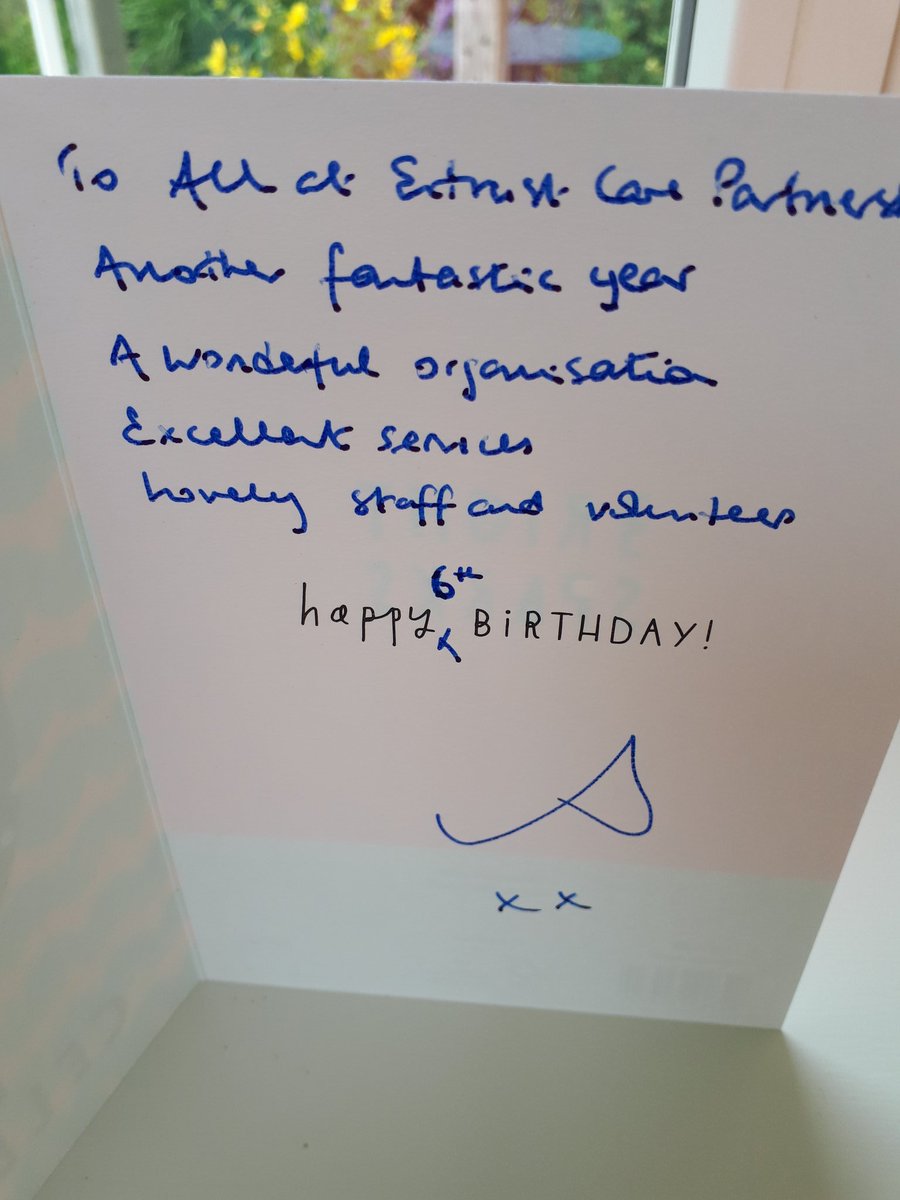 To All at Entrust Care Partners
Another fantastic year
A wonderful organisation
Excellent services
Lovely staff and volunteers
6th
happy BiRTHDAY!
x x